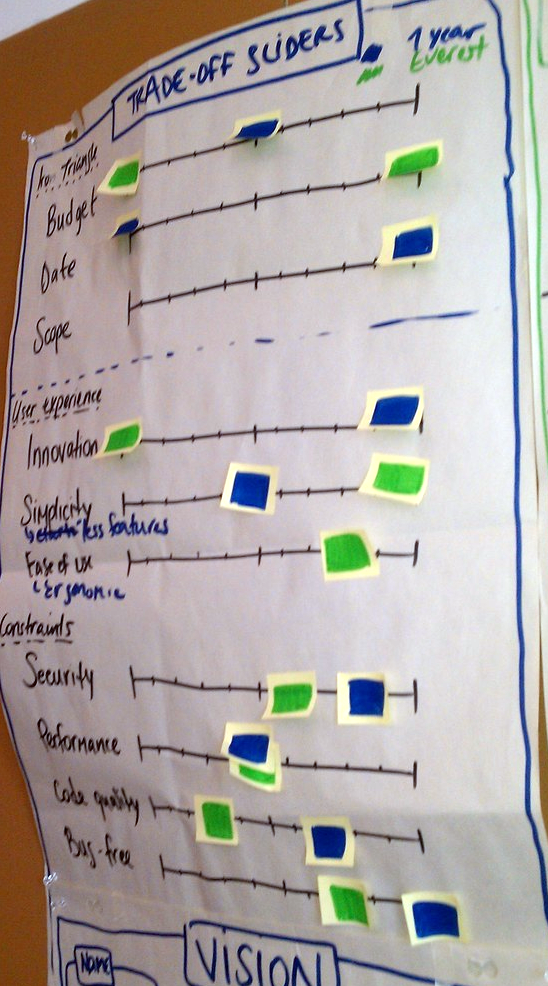 TRADE-OFF SLIDERS
1 year
Everest
Triangle
Budget
Date
Scope
User experience
Innovation
Simplicity
less features
Ease of UX
Ergonomic
Constraints
Security
Performance
Code quality
Bug-free
NAME
VISION